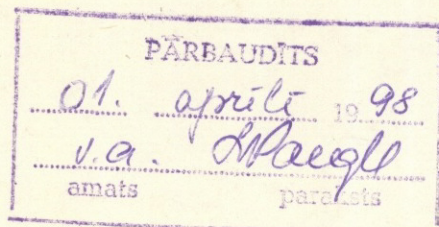 PĀRBAUDĪTS
01. aprīlī 1998
v.a.
amats paraksts